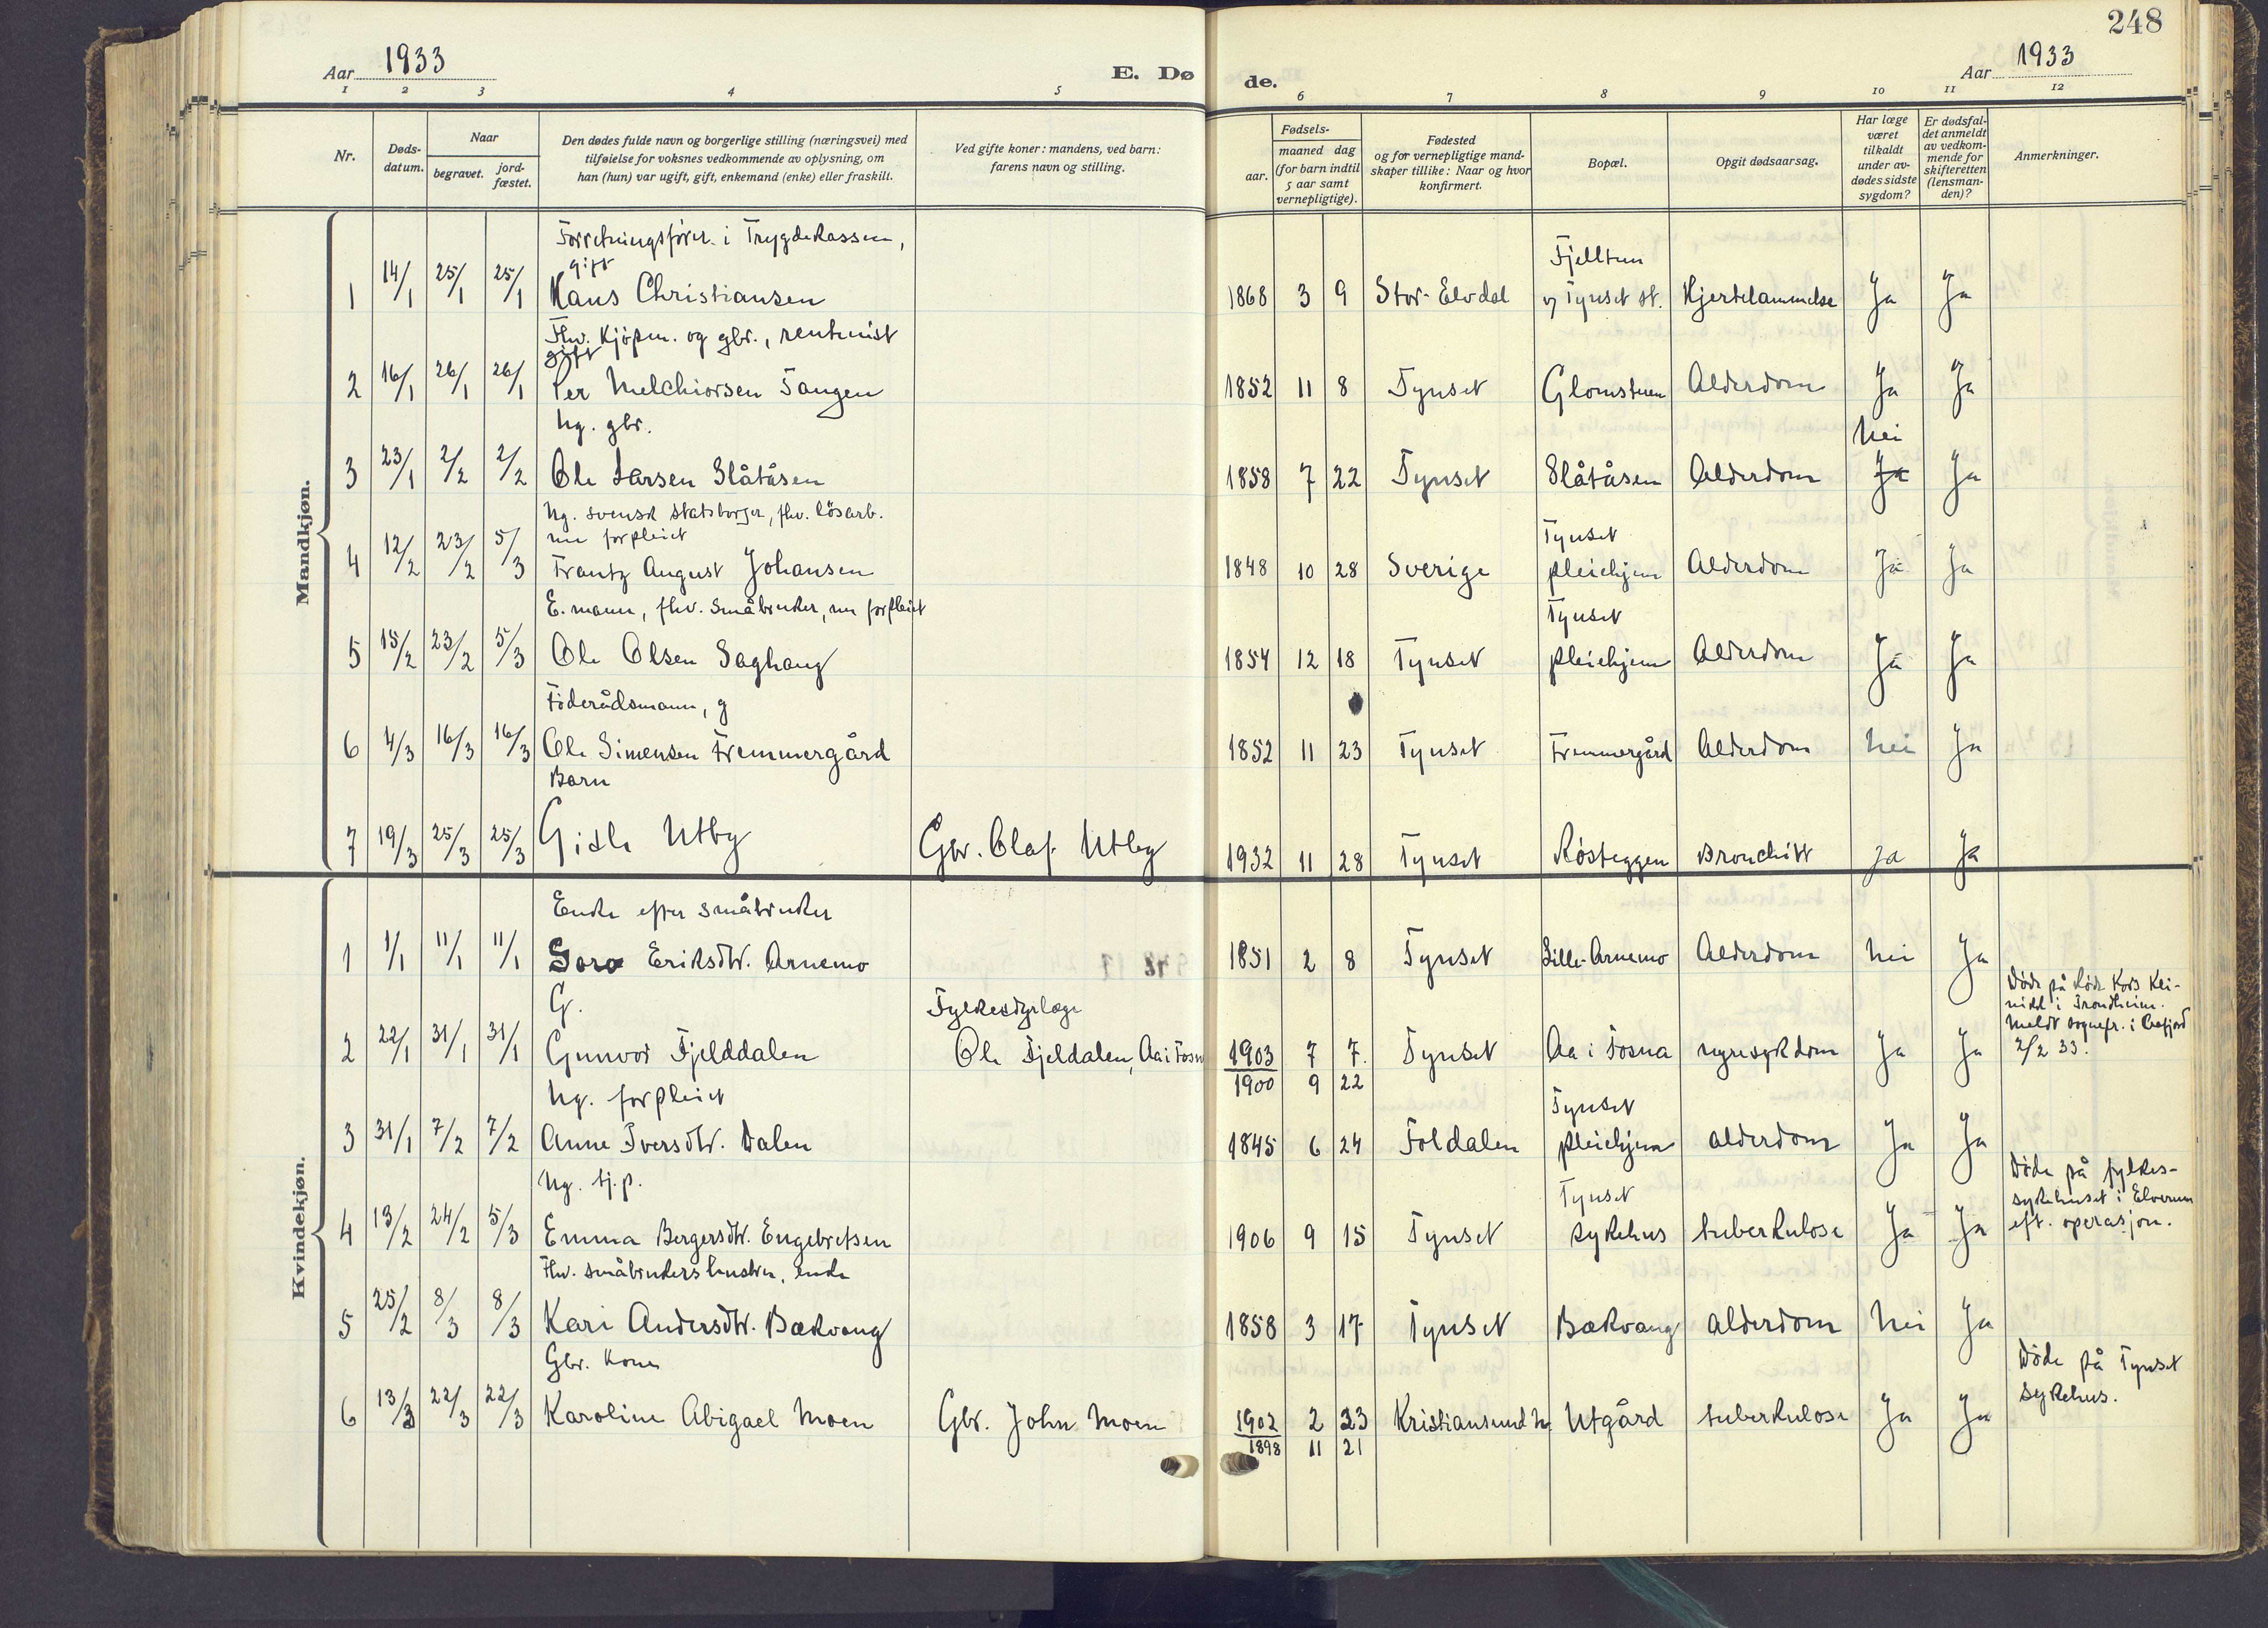 248
Aar 1933
E. Dø de.
Aar 1933
1 2 3 4 5 6 7 8 9 10 11 12
Nr.
Døds-datum.
Naar
begravet.
jord-fæstet.
Den dødes fulde navn og borgerlige stilling (næringsvei) med
tilføielse for voksnes vedkommende av oplysning, om
han (hun) var ugift, gift, enkemand (enke) eller fraskilt.
Ved gifte koner: mandens, ved barn:
farens navn og stilling.
Fødsels-
aar.
maaned dag
(for barn indtil
5 aar samt
vernepligtige).
Fødested
og for vernepligtige mand-
skaper tillike: Naar og hvor
konfirmert.
Bopæl.
Opgit dødsaarsag.
Har læge
været
tilkaldt
under av-
dødes sidste
sygdom?
Er dødsfal-
det anmeldt
av vedkom-
mende for
skifteretten
(lensman-
den)?
Anmerkninger.
Mandkjøn.
Forretningsfører i Trygdekassen,
gift Fjelltun
1 14/1 25/1 25/1 Hans Christiansen 1868 3 9 Stor-Elvdal v/ Tynset st. Hjertelammelse Ja Ja
Fhv. Kjøpm. og gbr., rentenist
gift
2 16/1 26/1 26/1 Per Melchiorsen Tangen 1852 11 8 Tynset Glomstuen Alderdom Ja Ja
Ug. gbr. Nei
3 23/1 2/2 2/2 Ole Larsen Slåtåsen 1858 7 22 Tynset Slåtåsen Alderdom Ja Ja
Ug. svensk statsborger, fhv. løsarb.
nu forpleiet Tynset
4 12/2 23/2 5/3 Frantz August Johansen 1848 10 28 Sverige pleiehjem Alderdom Ja Ja
E.mann, fhv. småbruker, nu forpleiet Tynset
5 15/2 23/2 5/3 Ole Olsen Saghaug 1854 12 18 Tynset pleiehjem Alderdom Ja Ja
Føderådsmann, g
6 4/3 16/3 16/3 Ole Simensen Fremmergård 1852 11 23 Tynset Fremmergård Alderdom Nei Ja
Barn
7 19/3 25/3 25/3 Gisle Utby Gbr. Olaf Utby 1932 11 28 Tynset Røsteggen Bronchitt Ja Ja
Kvindekjøn.
Enke efter småbruker
1 1/1 11/1 11/1 Goro Eriksdtr. Arnemo 1851 2 8 Tynset Lille-Arnemo Alderdom Nei Ja
G. Fylkesdyrlæge
2 22/1 31/1 31/1 Gunvor Fjelddalen Ole Fjeldalen, Aa i Fosn 1903 7 7. Tynset Aa i Fosna nyresykdom Ja Ja
1900 9 22
Døde på Røde Kors Kli-
nikk i Trondheim.
Meldt sognepr. i Aafjord
2/2 33.
Ug. forpleiet Tynset
3 31/1 7/2 7/2 Anne Iversdtr. Dalen 1845 6 24 Foldalen pleiehjem alderdom Ja Ja
Ug. tj.p. Tynset
4 13/2 24/2 5/3 Emma Bergersdtr. Engebretsen 1906 9 15 Tynset sykehus tuberkulose Ja Ja
Døde på fylkes-
sykehuset i Elverum
eft. operasjon.
Fhv. småbrukers hustru, enke
5 25/2 8/3 8/3 Kari Andersdtr. Bækvang 1858 3 17 Tynset Bækvang alderdom Nei Ja
Gbr. kone
6 13/3 22/3 22/3 Karoline Abigael Moen Gbr. John Moen 1902 2 23 Kristiansund N. Utgård tuberkulose Ja Ja
1898 11 21
Døde på Tynset
sykehus.